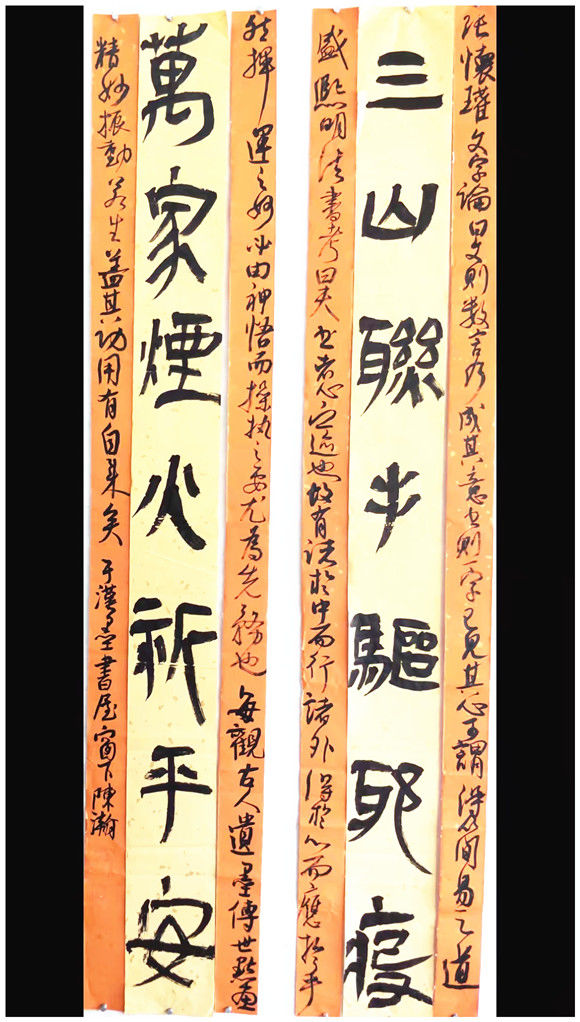 张懷瓘文字論曰文則數言乃成其意书則一字已見其心可謂得間易之道
三山聯手驅邪疫
盛熙明法書考曰夫书者心之迹也故有諸於中而行諸外得於心而應於手
然揮運之妙必由神悟而操执之要尤為先務也每觀古人遺墨傳世點畫
萬家煙火祈平安
精妙振動若生蓋其功用有自来矣 于漢墨書屋窗下陳瀚